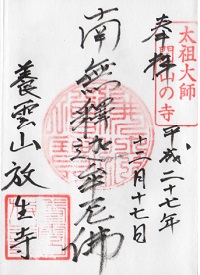 太祖大師
開山の寺
奉拝
平成二十七年
十二月十七日
南無釋迦牟尼佛
養雲山放生寺